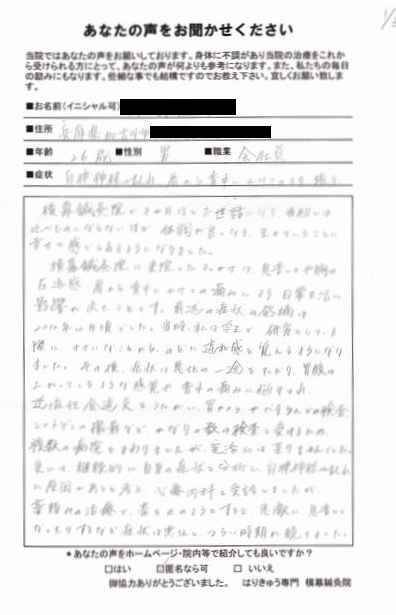 あなたの声をお聞かせください
当院ではあなたの声をお願いしております。身体に不調があり当院の治療をこれか
ら受けられる方にとって、あなたの声が何よりも参考になります。また、私たちの毎日
の励みにもなります。些細な事でも結構ですのでお教え下さい。宜しくお願い致しま
す。
■お名前(イニシャル可)
■住所 兵庫県加古川市
■年齢 26歳 ■性別 男 ■職業 会社員
■症状 自律神経の乱れ 肩から背中にかけてのコリ
横幕鍼灸院で お世話になり、当初とは
比べものにならないほど 体調が良くなり、生きていることに
幸せを感じられるようになりました。
横幕鍼灸院に来院したきっかけは、息苦しさや胸の
圧迫感、肩から背中にかけての痛みにより、日常生活に
影響が 前述の症状の発端は
2010年 月頃でした。当時、私は学生で、研究をしている
際に のどに違和感を覚えるようになり
ました。その後、症状は悪化の一途をたどり、胃酸の
上がっているような感覚や 背中の痛みに悩まされ、
逆流性食道炎をうたがい、胃カメラ、 検査
レントゲンの撮影など、かなりの数の検査を受けるため、
複数の病院をまわりましたが、完治には至りませんでした。
自身の症状を分析し、自律神経の乱れ
に原因があると考え、心療内科を受診しましたが、
薬頼みの治療で、薬を止めようとすると 息苦しく
なったりするなど症状は悪化し、つらい時期が続きました。
*あなたの声をホームページ・院内等で紹介しても良いですか?
□はい ☑匿名なら可 □いいえ
御協力ありがとうございました。 はりきゅう専門 横幕鍼灸院